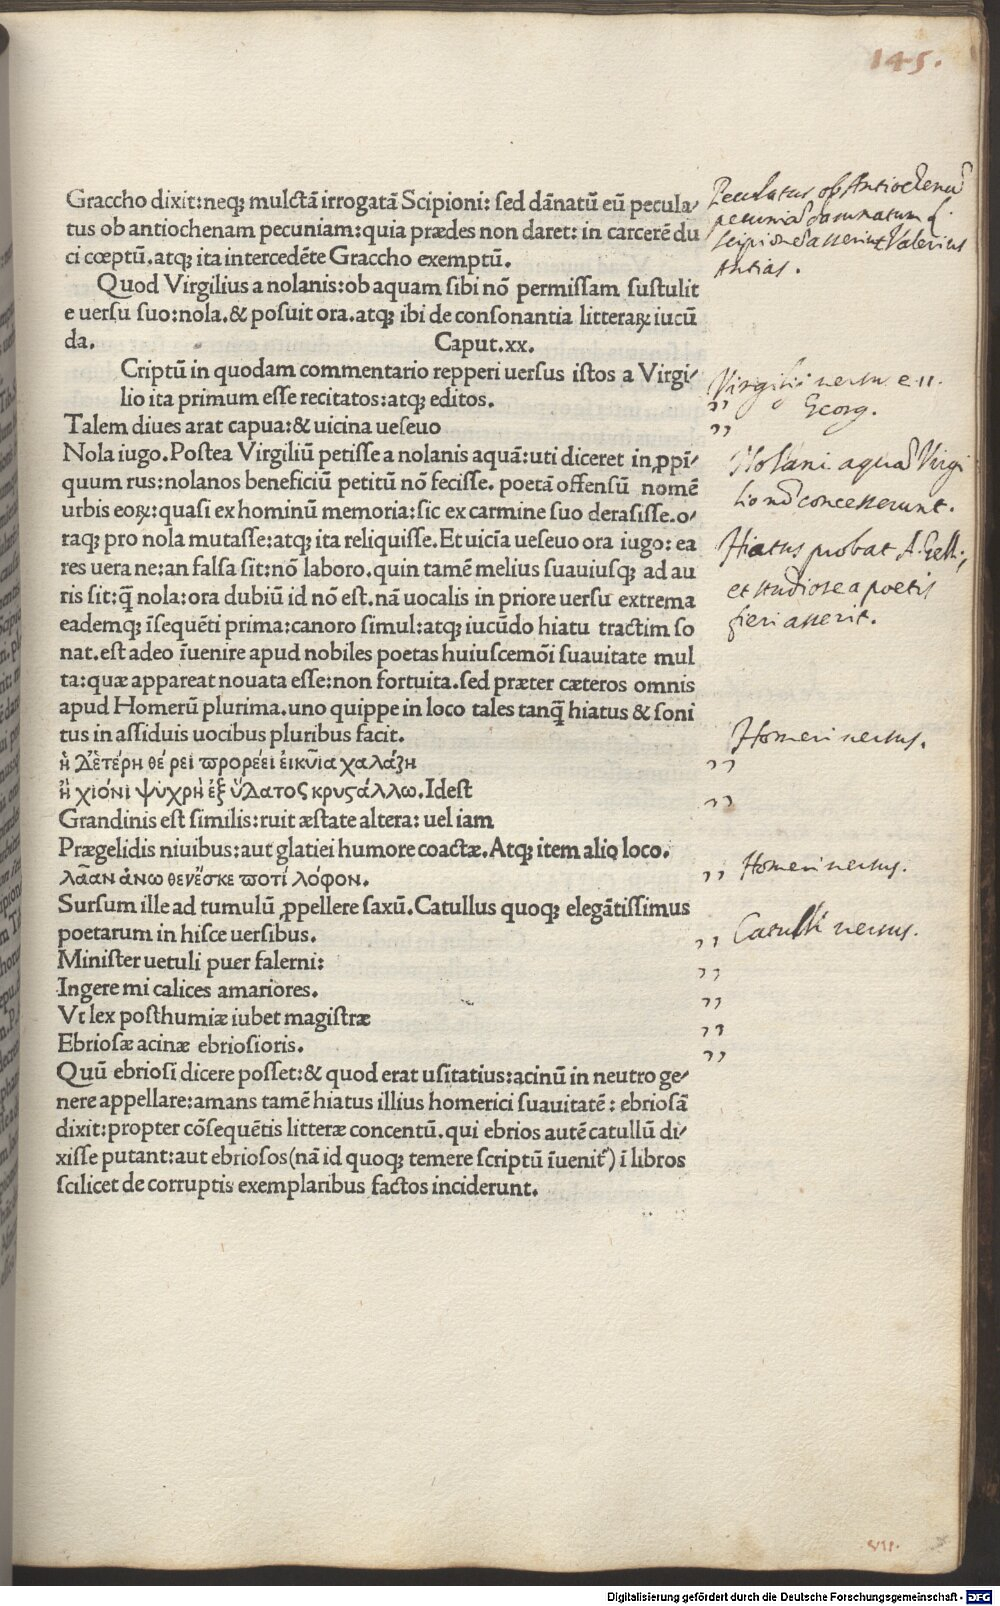 145.
Graccho dixit:neqꝫ mulctā irrogatā Scipioni: sed dānatū eū pecula⸗
tus ob antiochenam pecuniam:quia prædes non daret: in carcerē du
ci cœptū.atqꝫ ita intercedēte Graccho exemptū.
Quod Virgilius a nolanis:ob aquam sibi nō permissam sustulit
e uersu suo:nola.& posuit ora.atqꝫ ibi de consonantia litteraꝝ iucū
da. Caput.xx.
Criptū in quodam commentario repperi uersus istos a Virgi⸗
lio ita primum esse recitatos:atqꝫ editos.
Talem diues arat capua:& uicina ueseuo
Nola iugo.Postea Virgiliū petisse a nolanis aquā:uti diceret in ꝓpi⸗
quum rus:nolanos beneficiū petitū nō fecisse. poetā offensū nomē
urbis eoꝝ:quasi ex hominū memoria:sic ex carmine suo derasisse.o⸗
raqꝫ pro nola mutasse:atqꝫ ita reliquisse.Et uicīa ueseuo ora iugo: ea
res uera ne:an falsa sit:nō laboro.quin tamē melius suauiusqꝫ ad au
ris sit:q̄ nola:ora dubiū id nō est.nā uocalis in priore uersu extrema
eademqꝫ īsequēti prima:canoro simul:atqꝫ iucūdo hiatu tractim so
nat.est adeo īuenire apud nobiles poetas huiuscemōi suauitate mul
ta:quæ appareat nouata esse:non fortuita.sed præter cæteros omnis
apud Homerū plurima.uno quippe in loco tales tanq̄ hiatus & soni
tus in assiduis uocibus pluribus facit.
ἡ Δὲτέρη θέ ρεὶ προρέεὶ ἐικυῖα χαλάζη
ἢ χιόνὶ ψύχρὴ ἐξ ὕδατος κρυςάλλω.Idest
Grandinis est similis:ruit æstate altera: uel iam
Prægelidis niuibus:aut glatiei humore coactæ.Atqꝫ item alio loco.
λᾶαν ἄνω θενέσκε ποτί λόφον.
Sursum ille ad tumulū ꝓpellere saxū.Catullus quoqꝫ elegātissimus
poetarum in hisce uersibus.
Minister uetuli puer falerni:
Ingere mi calices amariores.
Vt lex posthumiæ iubet magistræ
Ebriosæ acinæ ebriosioris.
Quū ebriosi dicere posset:& quod erat usitatius:acinū in neutro ge⸗
nere appellare:amans tamē hiatus illius homerici suauitatē: ebriosā
dixit:propter cōsequētis litteræ concentū.qui ebrios autē catullū di⸗
xisse putant:aut ebriosos(nā id quoqꝫ temere scriptū īuenit̄) ī libros
scilicet de corruptis exemplaribus factos inciderunt.
Peculatus ob Antiochenā
pecuniā damnatum
scipionē asserit Valerius
Antias.
Virgilii versu e 11.
Georg.
Nolani aquā Virgi
lio nō concesserunt.
Hiatus probat A. Gell.,
et studiose a poetis
fieri asserit.
Homeri versus.
Homeri versus.
Catulli versus.
VII.
Digitalisierung gefördert durch die Deutsche Forschungsgemeinschaft - DFG